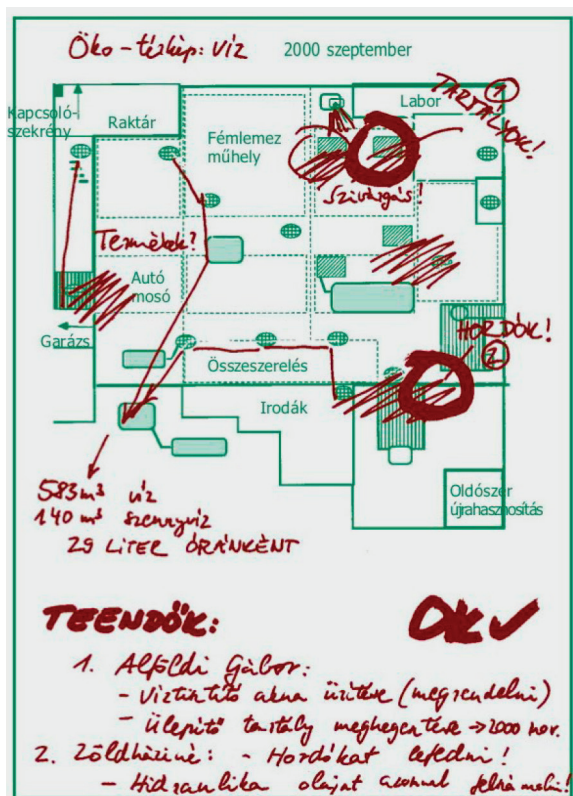 Öko-térkép: víz 2000 szeptember
Kapcsoló-
szekrény
Raktár
Fémlemez
műhely
Labor
TARTÁLYOK!
1
Szivárgás!
Termékek?
Autó
mosó
Garázs
HORDÓK!
2
Összeszerelés
Irodák
Oldószer
újrahasznosítás
583 m³ víz
140 m³ szennyvíz
29 LITER ÓRÁNKÉNT
TEENDŐK: OK ✓
1. Alföldi Gábor:
- Víztisztító akna ürítése (megrendelni)
- Ülepítő tartály meghegesztése → 2000 nov.
2. Zöldháziné: - Hordókat lefedni!
- Hidraulika olajat azonnal